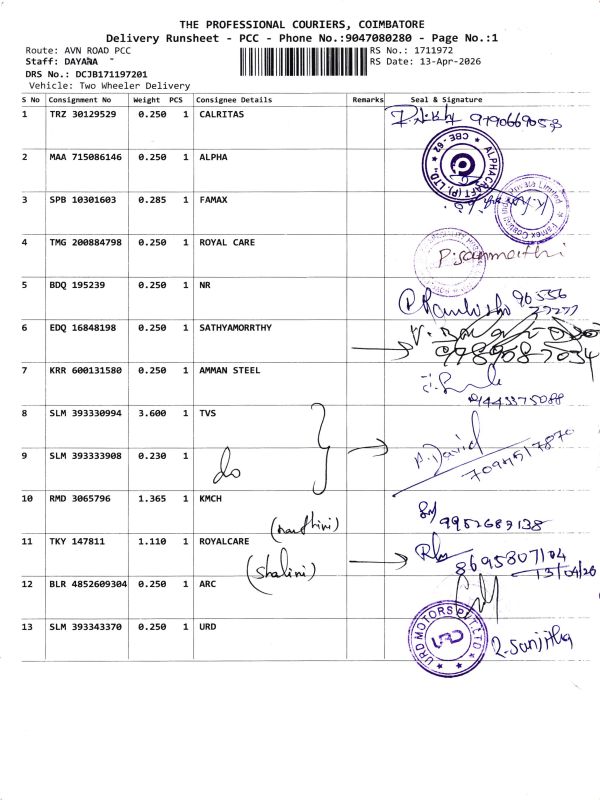 THE PROFESSIONAL COURIERS, COIMBATORE
Delivery Runsheet - PCC - Phone No.:9047080280 - Page No.:1
Route: AVN ROAD PCC
RS No.: 1711972
Staff: DAYANA
RS Date: 13-Apr-2026
DRS No.: DCJB171197201
Vehicle: Two Wheeler Delivery
S No Consignment No Weight PCS Consignee Details Remarks Seal & Signature
1 TRZ 30129529 0.250 1 CALRITAS 9790669053
2 MAA 715086146 0.250 1 ALPHA
ALPHACRAFT (P) LTD. CBE - 62
3 SPB 10301603 0.285 1 FAMAX
4 TMG 200884798 0.250 1 ROYAL CARE P. Sanmathi
5 BDQ 195239 0.250 1 NR
6 EDQ 16848198 0.250 1 SATHYAMORRTHY
7 KRR 600131580 0.250 1 AMMAN STEEL
8 SLM 393330994 3.600 1 TVS
9 SLM 393333908 0.230 1 do P. David
10 RMD 3065796 1.365 1 KMCH
(nandhini)
11 TKY 147811 1.110 1 ROYALCARE 8695807104
(Shalini) 13/04/26
12 BLR 4852609304 0.250 1 ARC
13 SLM 393343370 0.250 1 URD
URD MOTORS PVT. LTD URD